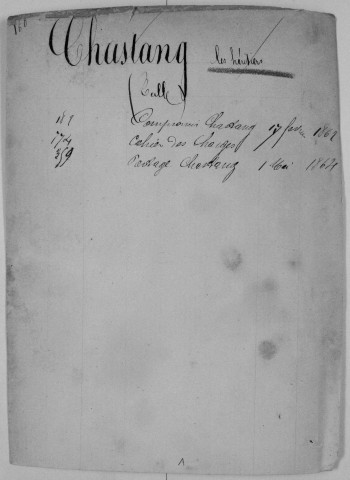 Chastang les héritiers
(Tulle)
181 Compromis Chastang 17 février 1862
174 Cahier des Charges
359 Partage Chastang 1 Mai 1864
1